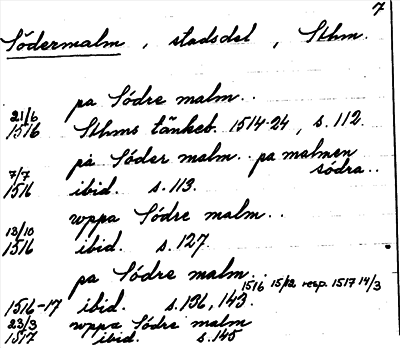 7
Södermalm, stadsdel, Sthm.
pa Södre malm..
21/6
1516 Sthms tänkeb. 1514-24, s. 112.
pa Söder malm.. pa malmen
södra..
7/7
1516 ibid. s. 113.
wppa Södre malm..
13/10
1516 ibid. s. 127.
pa Södre malm..
1516 15/12 resp. 1517 14/3
1516-17 ibid. s. 136, 143.
23/3 wppa Södre malm
1517 ibid. s. 145